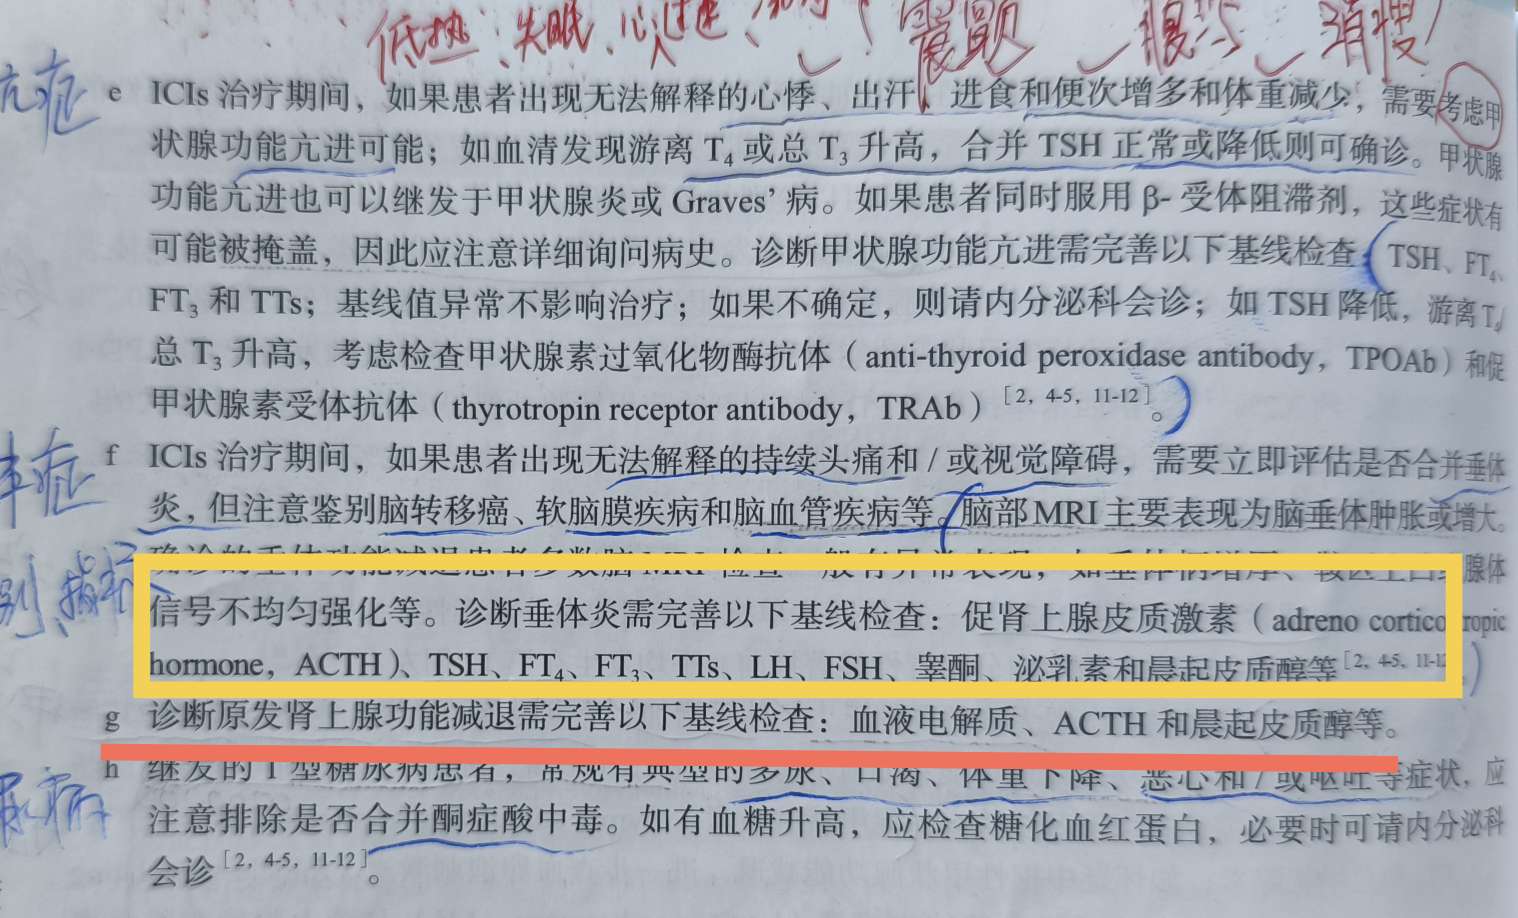 低热、失眠、心过速、
震颤
消瘦
亢症
e ICIs 治疗期间，如果患者出现无法解释的心悸、出汗、进食和便次增多和体重减少，需要考虑甲
状腺功能亢进可能；如血清发现游离 T₄ 或总 T₃ 升高，合并 TSH 正常或降低则可确诊。甲状腺
功能亢进也可以继发于甲状腺炎或 Graves’ 病。如果患者同时服用 β- 受体阻滞剂，这些症状有
可能被掩盖，因此应注意详细询问病史。诊断甲状腺功能亢进需完善以下基线检查：TSH、FT₄、
FT₃ 和 TTs；基线值异常不影响治疗；如果不确定，则请内分泌科会诊；如 TSH 降低，游离 T₄/
总 T₃ 升高，考虑检查甲状腺素过氧化物酶抗体（anti-thyroid peroxidase antibody，TPOAb）和促
甲状腺素受体抗体（thyrotropin receptor antibody，TRAb）[2，4-5，11-12]。
f ICIs 治疗期间，如果患者出现无法解释的持续头痛和 / 或视觉障碍，需要立即评估是否合并垂体
炎，但注意鉴别脑转移癌、软脑膜疾病和脑血管疾病等。脑部 MRI 主要表现为脑垂体肿胀或增大。
确诊的垂体功能减退患者多数脑 MRI 检查一般有异常表现，如垂体柄增厚、腺体
信号不均匀强化等。诊断垂体炎需完善以下基线检查：促肾上腺皮质激素（adreno corticotropic
hormone，ACTH）、TSH、FT₄、FT₃、TTs、LH、FSH、睾酮、泌乳素和晨起皮质醇等[2，4-5，11-12]。
g 诊断原发肾上腺功能减退需完善以下基线检查：血液电解质、ACTH 和晨起皮质醇等。
h 继发的 1 型糖尿病患者，常规有典型的多尿、口渴、体重下降、恶心和 / 或呕吐等症状，应
注意排除是否合并酮症酸中毒。如有血糖升高，应检查糖化血红蛋白，必要时可请内分泌科
会诊[2，4-5，11-12]。